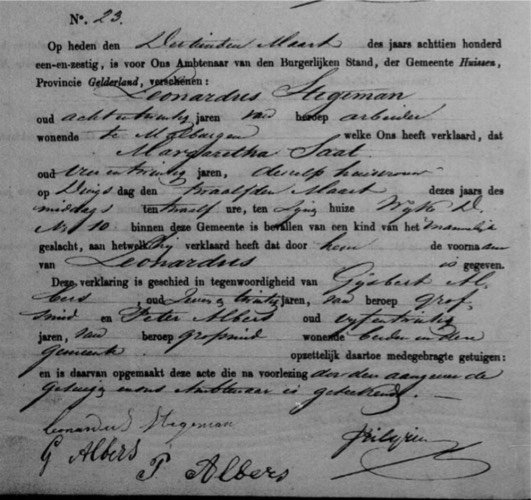 No. 23.
Op heden den Dertienden Maart des jaars achttien honderd
een-en-zestig, is voor Ons Ambtenaar van den Burgerlijken Stand, der Gemeente Huissen,
Provincie Gelderland, verschenen:
Leonardus Stegeman
oud achtentwintig jaren van beroep arbeider
wonende te Malburgen welke Ons heeft verklaard, dat
Margaretha Saat
oud jaren, deszelfs huisvrouw
op Dings dag den twaalfden Maart dezes jaars des
middags ten twaalf ure, ten zijne huize Wijk D.
No 10 binnen deze Gemeente is bevallen van een kind van het mannelijk
geslacht, aan hetwelk hij verklaard heeft dat door hem de voornaam
van Leonardus is gegeven.
Deze verklaring is geschied in tegenwoordigheid van Gijsbert Al
bers, oud jaren, van beroep grof
smid en Peter Albers oud vijfentwintig
jaren, van beroep grofsmid wonende beiden in deze
gemeente opzettelijk daartoe medegebragte getuigen:
en is daarvan opgemaakt deze acte die na voorlezing door den aangever de
getuigen en ons Ambtenaar is geteekend.
Leonardus Stegeman
G Albers
P Albers